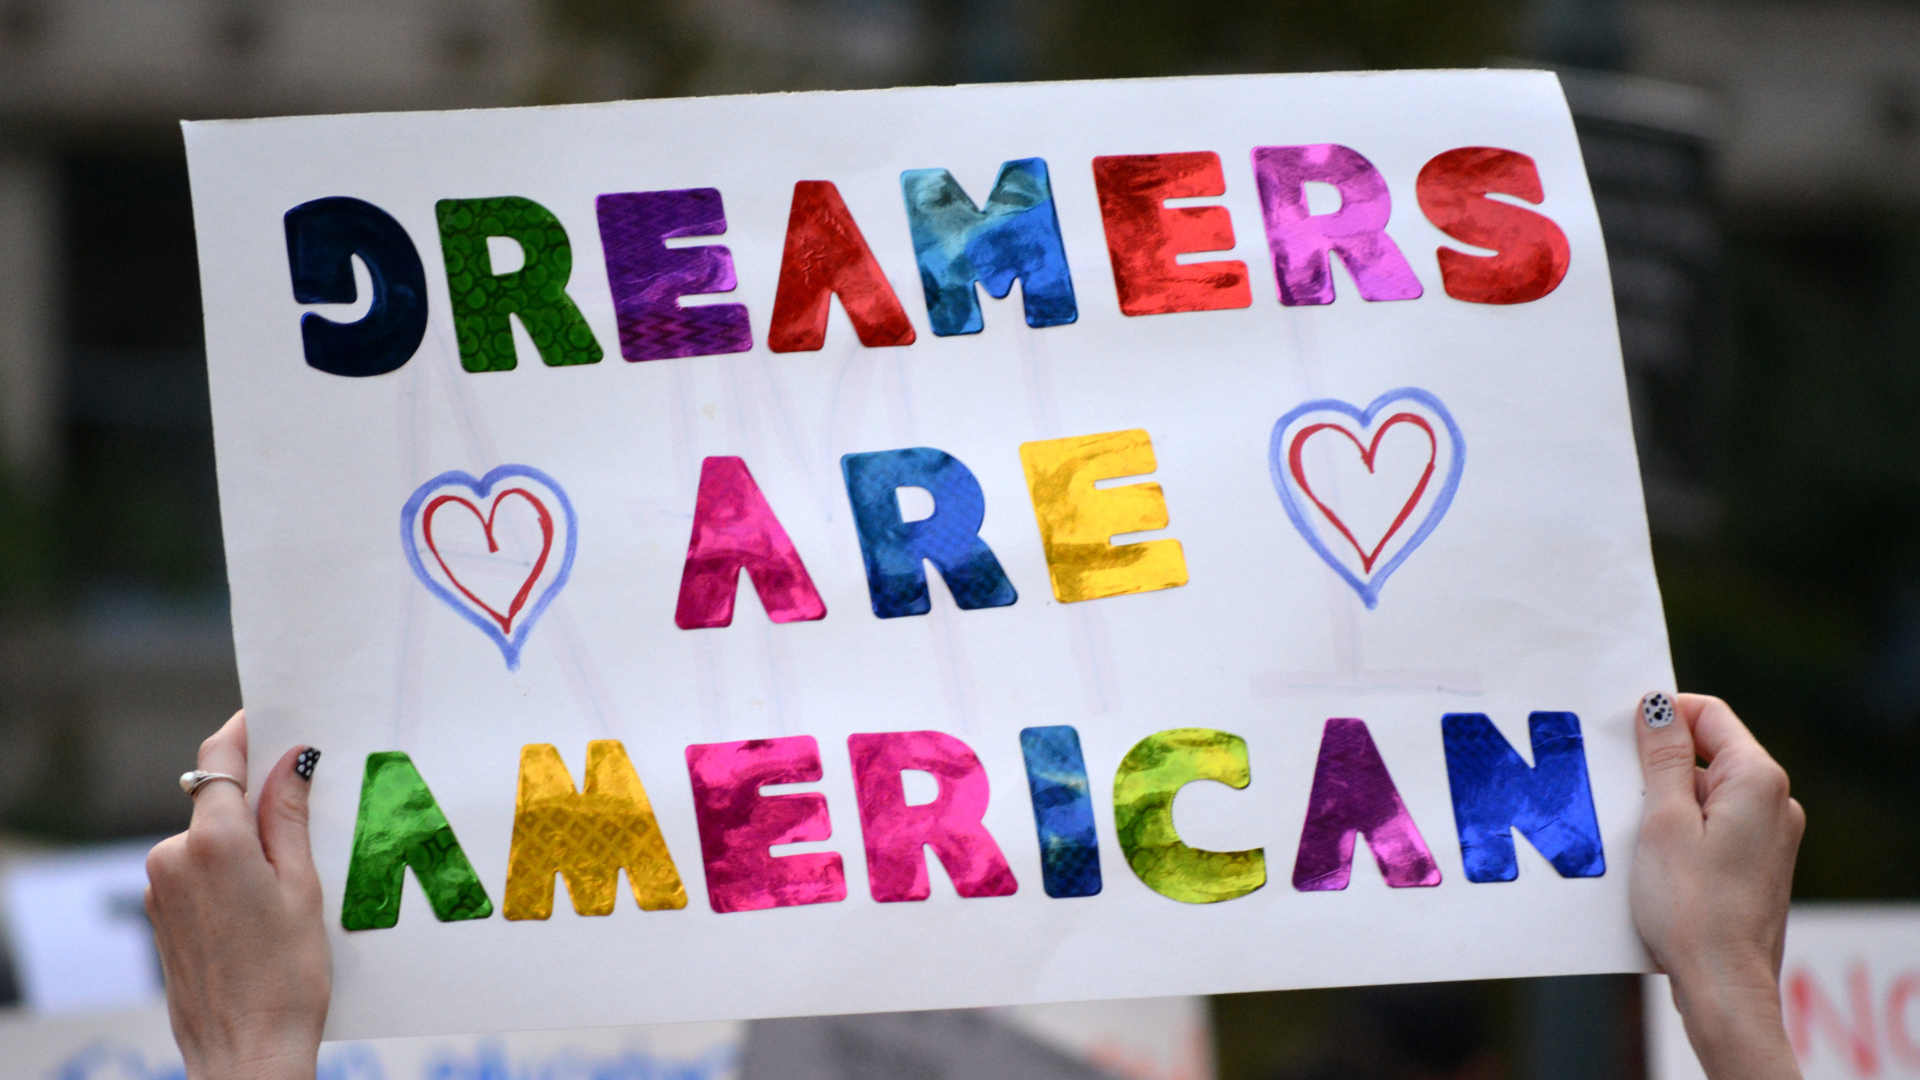 DREAMERS
ARE
AMERICAN
NO